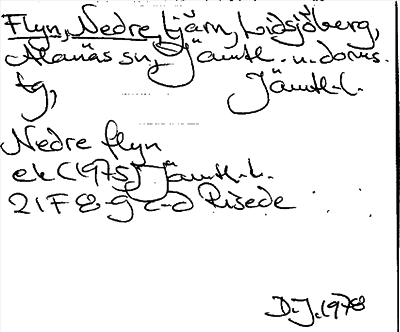 Flyn, Nedre, tjärn, Lidsjöberg,
Alanäs sn, Jämtl. n. doms.
tg, Jämtl. l.
Nedre flyn
ek (1975) Jämtl. l.
21F 8-g c-d Risede
D.J. 1978